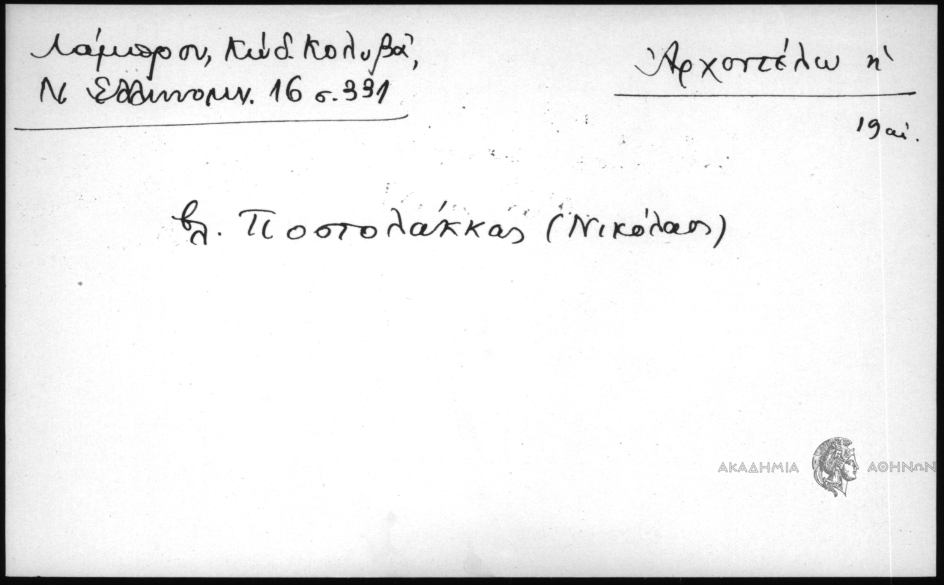 Λάμπρου, Κώδ. Κολυβᾶ,
Ν. Ἑλληνομν. 16 σ. 331
Ἀρχοντέλω ἡ
19 αἰ.
βλ. Ποστολάκκας (Νικόλαος)
ΑΚΑΔΗΜΙΑ ΑΘΗΝΩΝ